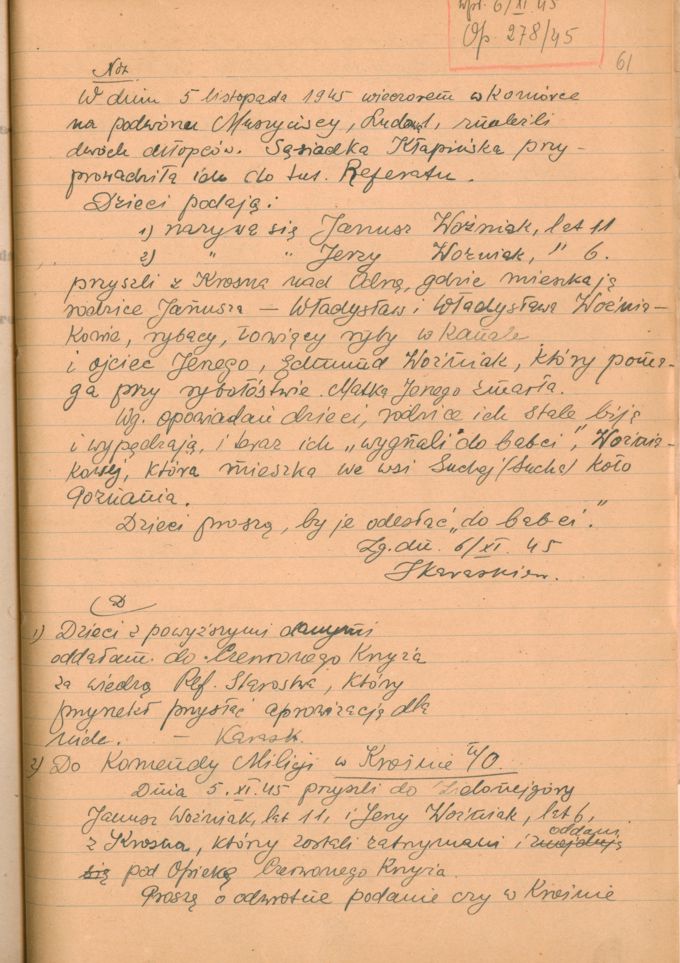 wpł. 6/XI 45
Op. 278/45
61
Not.
W dniu 5 listopada 1945 wieczorem w komórce
na podwórzu znaleźli
dwóch chłopców. Sąsiadka Kłapińska przy-
prowadziła ich do tut. Referatu.
Dzieci podają:
1) nazywa się Janusz Woźniak, lat 11
2) " " Jerzy Woźniak, " 6.
przyszli z Krosna nad Odrą, gdzie mieszkają
rodzice Janusza — Władysław i Władysława Woźnia-
kowie, rybacy, łowiący ryby w kanale
i ojciec Jerzego, Edmund Woźniak, który poma-
ga przy rybołóstwie. Matka Jerzego zmarła.
Wg. opowiadań dzieci, rodzice ich stale biją
i wypędzają, i teraz ich „wygnali do babci", Woźnia-
kowej, która mieszka we wsi Suchej /Sucha/ koło
Poznania.
Dzieci proszą, by je odesłać „do babci."
Zg. dn. 6/XI. 45
D
1) Dzieci z powyższymi danymi
oddałam do Czerwonego Krzyża
za wiedzą Ref. Starostwa, który
przyrzekł przysłać aprowizację dla
nich. — Karask.
2) Do Komendy Milicji w Krośnie n/O.
Dnia 5. XI. 45 przyszli do Zielonejgóry
Janusz Woźniak, lat 11, i Jerzy Woźniak, lat 6,
z Krosna, którzy zostali zatrzymani i znajdują oddani
się pod Opiekę Czerwonego Krzyża.
Proszę o odwrotne podanie czy w Krośnie